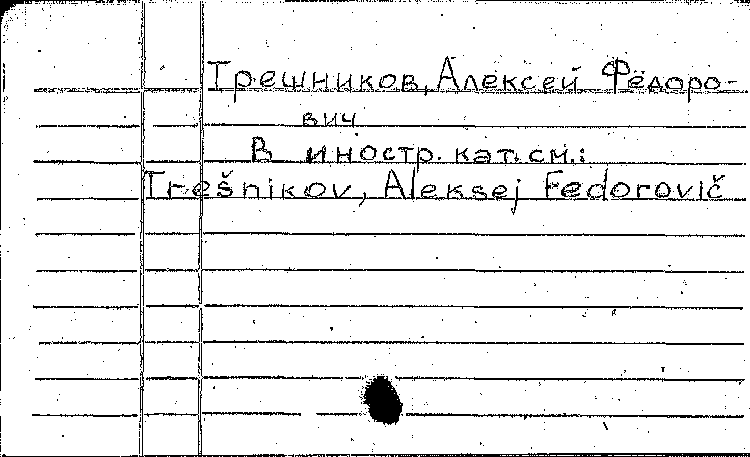 Трешников, Алексей Фёдоро-
вич
В иностр. кат. см.:
Trešnikov, Aleksej Fedorovič